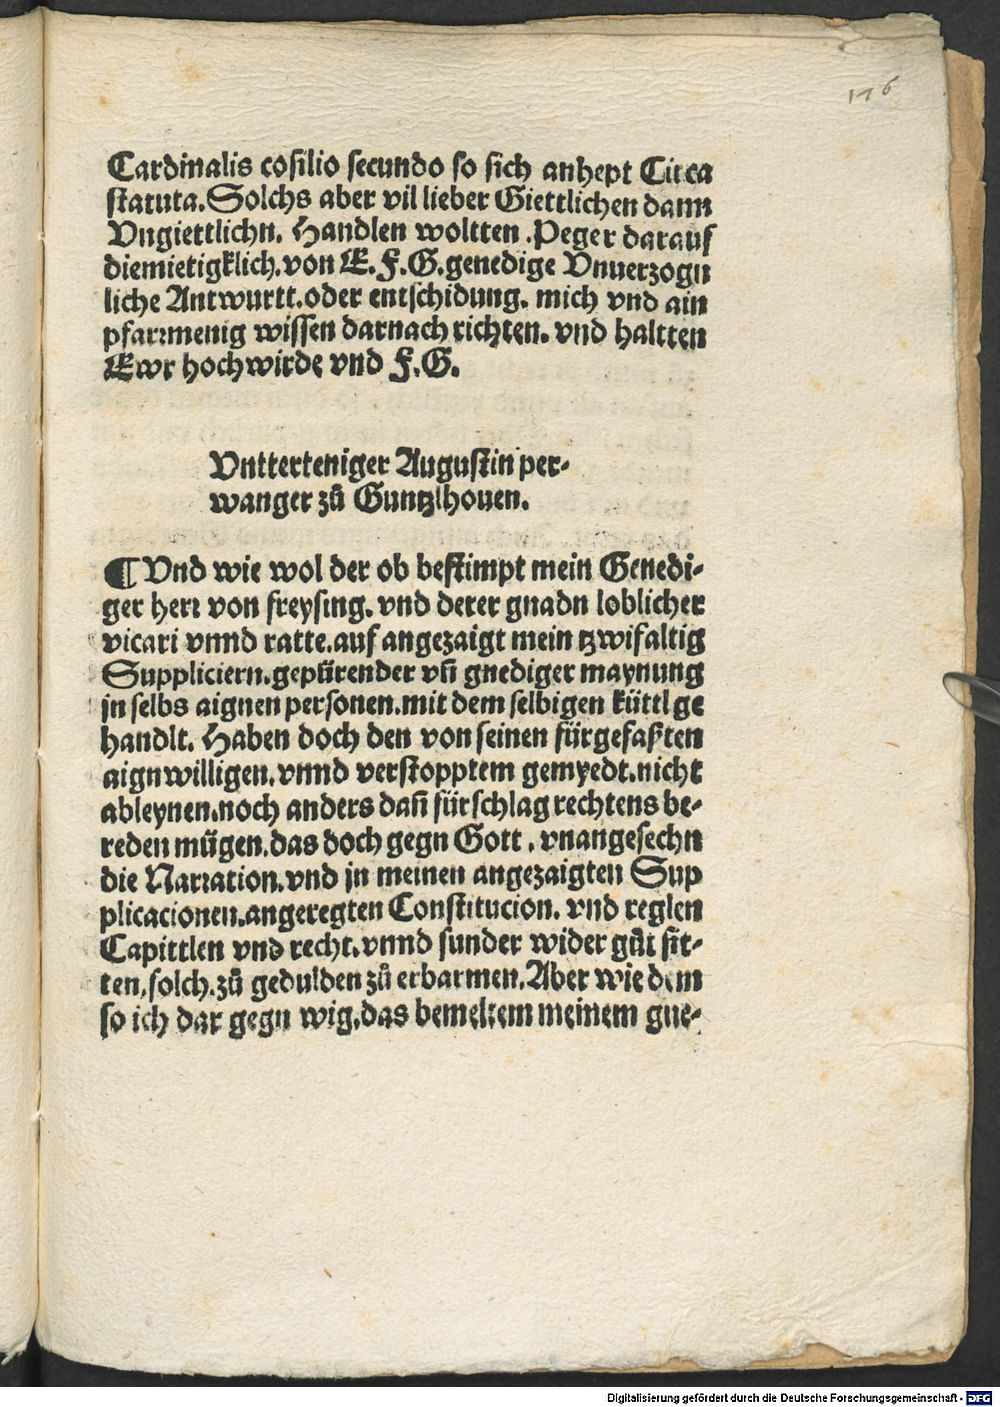 176
Cardinalis cosilio secundo so sich anhept Circa
statuta. Solchs aber vil lieber Giettlichen dann
Vngiettlichn. Handlen woltten. Peger darauf
diemietigklich. von E. F. G. genedige Vnuerzogn
liche Antwurtt. oder entschidung. mich vnd ain
pfarrmenig wissen darnach richten. vnd haltten
Ewr hochwirde vnd F. G.
Vntterteniger Augustin per-
wanger zů Guntzlhouen.
¶ Vnd wie wol der ob bestimpt mein Genedi-
ger herr von freysing. vnd derer gnadn loblicher
vicari vnnd ratte. auf angezaigt mein tzwifaltig
Suppliciern. gepürender vñ gnediger maynung
in selbs aignen personen. mit dem selbigen küttl ge
handlt. Haben doch den von seinen fürgefaßten
aignwilligen. vnnd verstopptem gemyedt. nicht
ableynen. noch anders dañ fürschlag rechtens be-
reden mügen. das doch gegn Gott. vnangesechn
die Narration. vnd in meinen angezaigten Sup
plicacionen. angeregten Constitucion. vnd reglen
Capittlen vnd recht. vnnd sunder wider gůt sit-
ten, solch. zů gedulden zů erbarmen. Aber wie dem
so ich dar gegn wig. das bemeltem meinem gne-
Digitalisierung gefördert durch die Deutsche Forschungsgemeinschaft - DFG